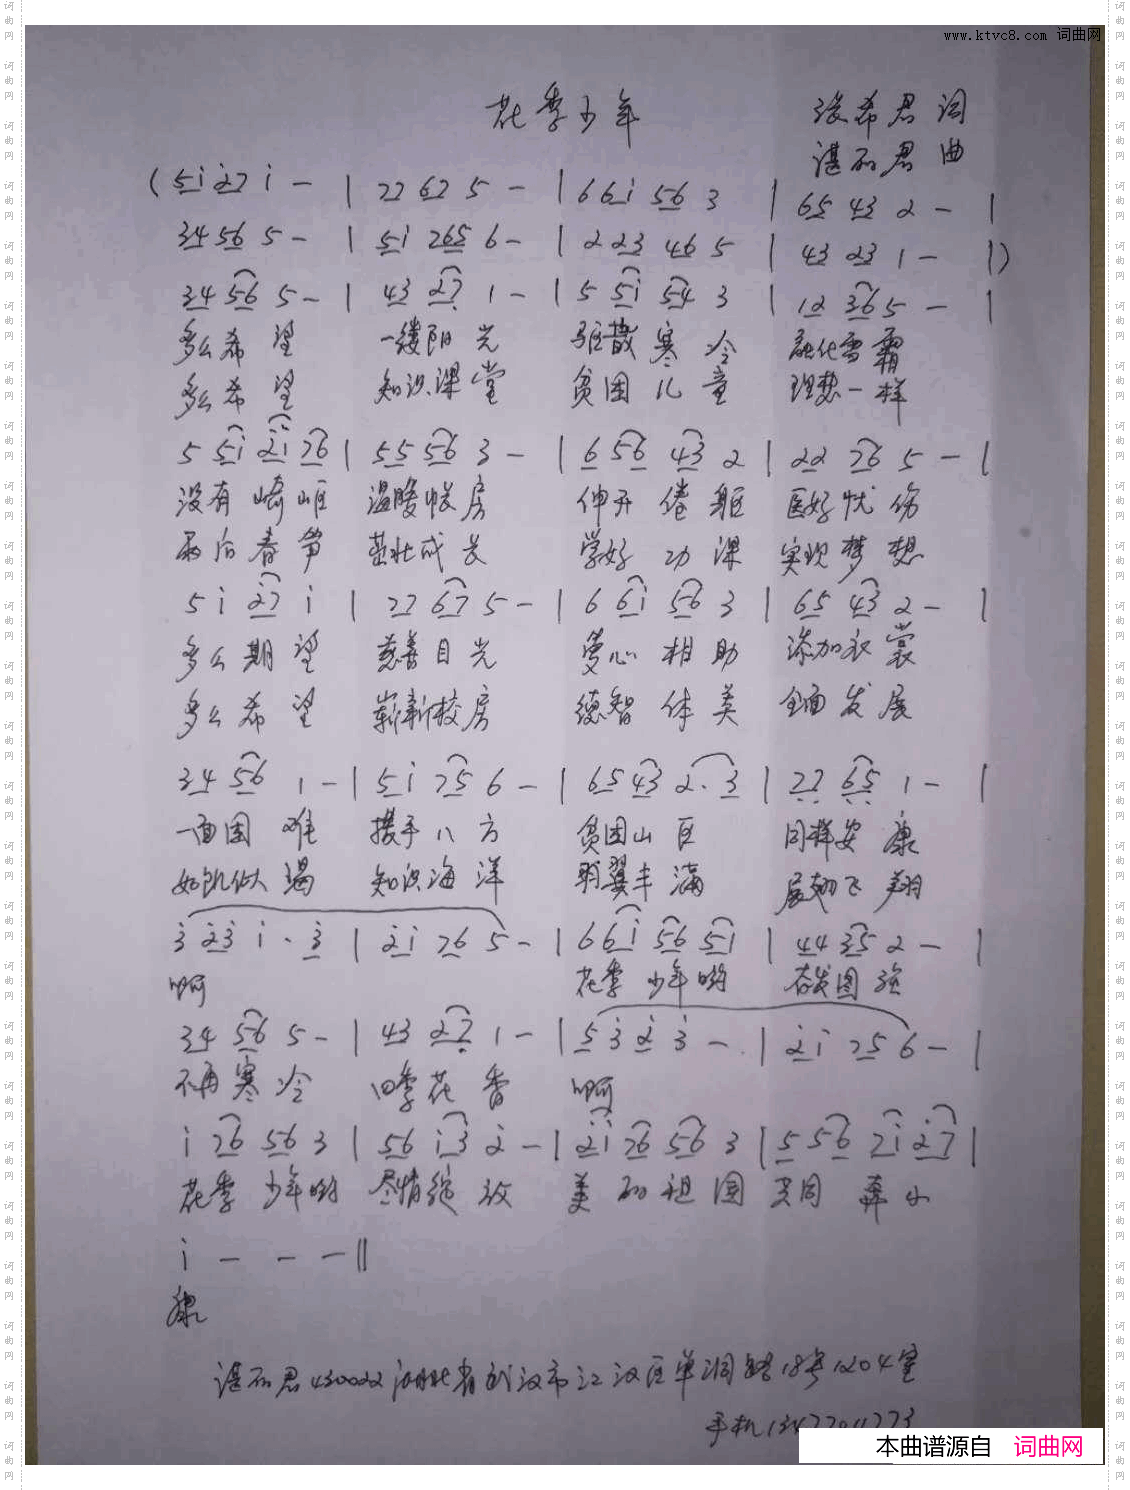 www.ktvc8.com 词曲网
花季少年
张希君 词
谌石君 曲
(5i27 i - | 2767 5 - | 66i 56 3 | 65 43 2 - |
34 56 5 - | 5i 265 6 - | 2 23 46 5 | 43 23 1 - |)
34 56 5 - | 43 27 1 - | 5 5i 54 3 | 12 36 5 - |
多么希望 一缕阳光 驱散寒冷 融化雪霜
多么希望 知识课堂 贫困儿童 理想一样
5 5i 2i 76 | 55 56 3 - | 6 56 43 2 | 22 76 5 - |
没有崎岖 温暖帐房 伸开倦躯 医好忧伤
雨后春笋 茁壮成长 学好功课 实现梦想
5 i 27 i | 77 67 5 - | 6 6i 56 3 | 65 43 2 - |
多么期望 慈善目光 爱心相助 添加衣裳
多么希望 崭新校房 德智体美 全面发展
34 56 1 - | 5i 75 6 - | 65 43 2· 3 | 77 65 1 - |
一面困难 携手八方 贫困山区 同样安康
如饥似渴 知识海洋 羽翼丰满 展翅飞翔
3 23 i · 3 | 2i 76 5 - | 6 6i 56 5i | 44 35 2 - |
啊 花季少年哟 奋发图强
34 56 5 - | 43 27 1 - | 5 3 2 3 - · | 2i 75 6 - |
不再寒冷 四季花香 啊
i 76 56 3 | 56 i3 2 - | 2i 76 56 3 | 5 56 7i 27 |
花季少年哟 尽情绽放 美的祖国 共同奔小
i - - - ||
康
谌石君430022湖北省武汉市江汉区单洞路18号1204室
手机
本曲谱源自 词曲网